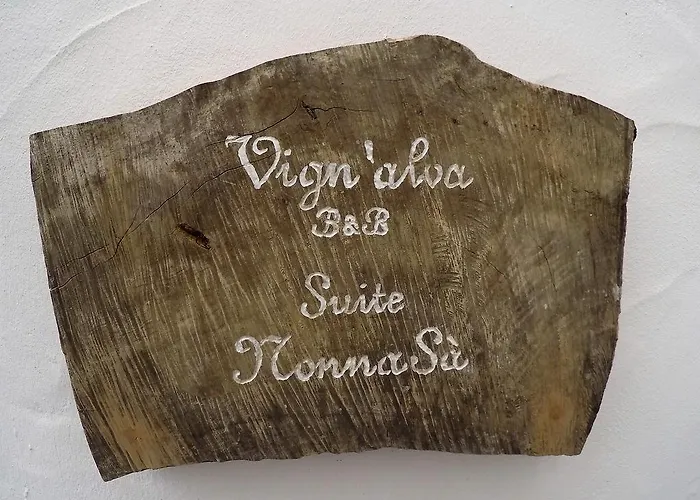 Vign'alva
B&B
Suite
NonnaSà